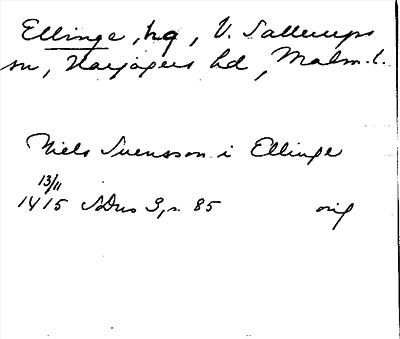 Ellinge, hg, V. Sallerups
sn, Harjagers hd, Malm. l.
Niels Suensson i Ellinge
13/11
1415 SDns 3, s. 85 orig